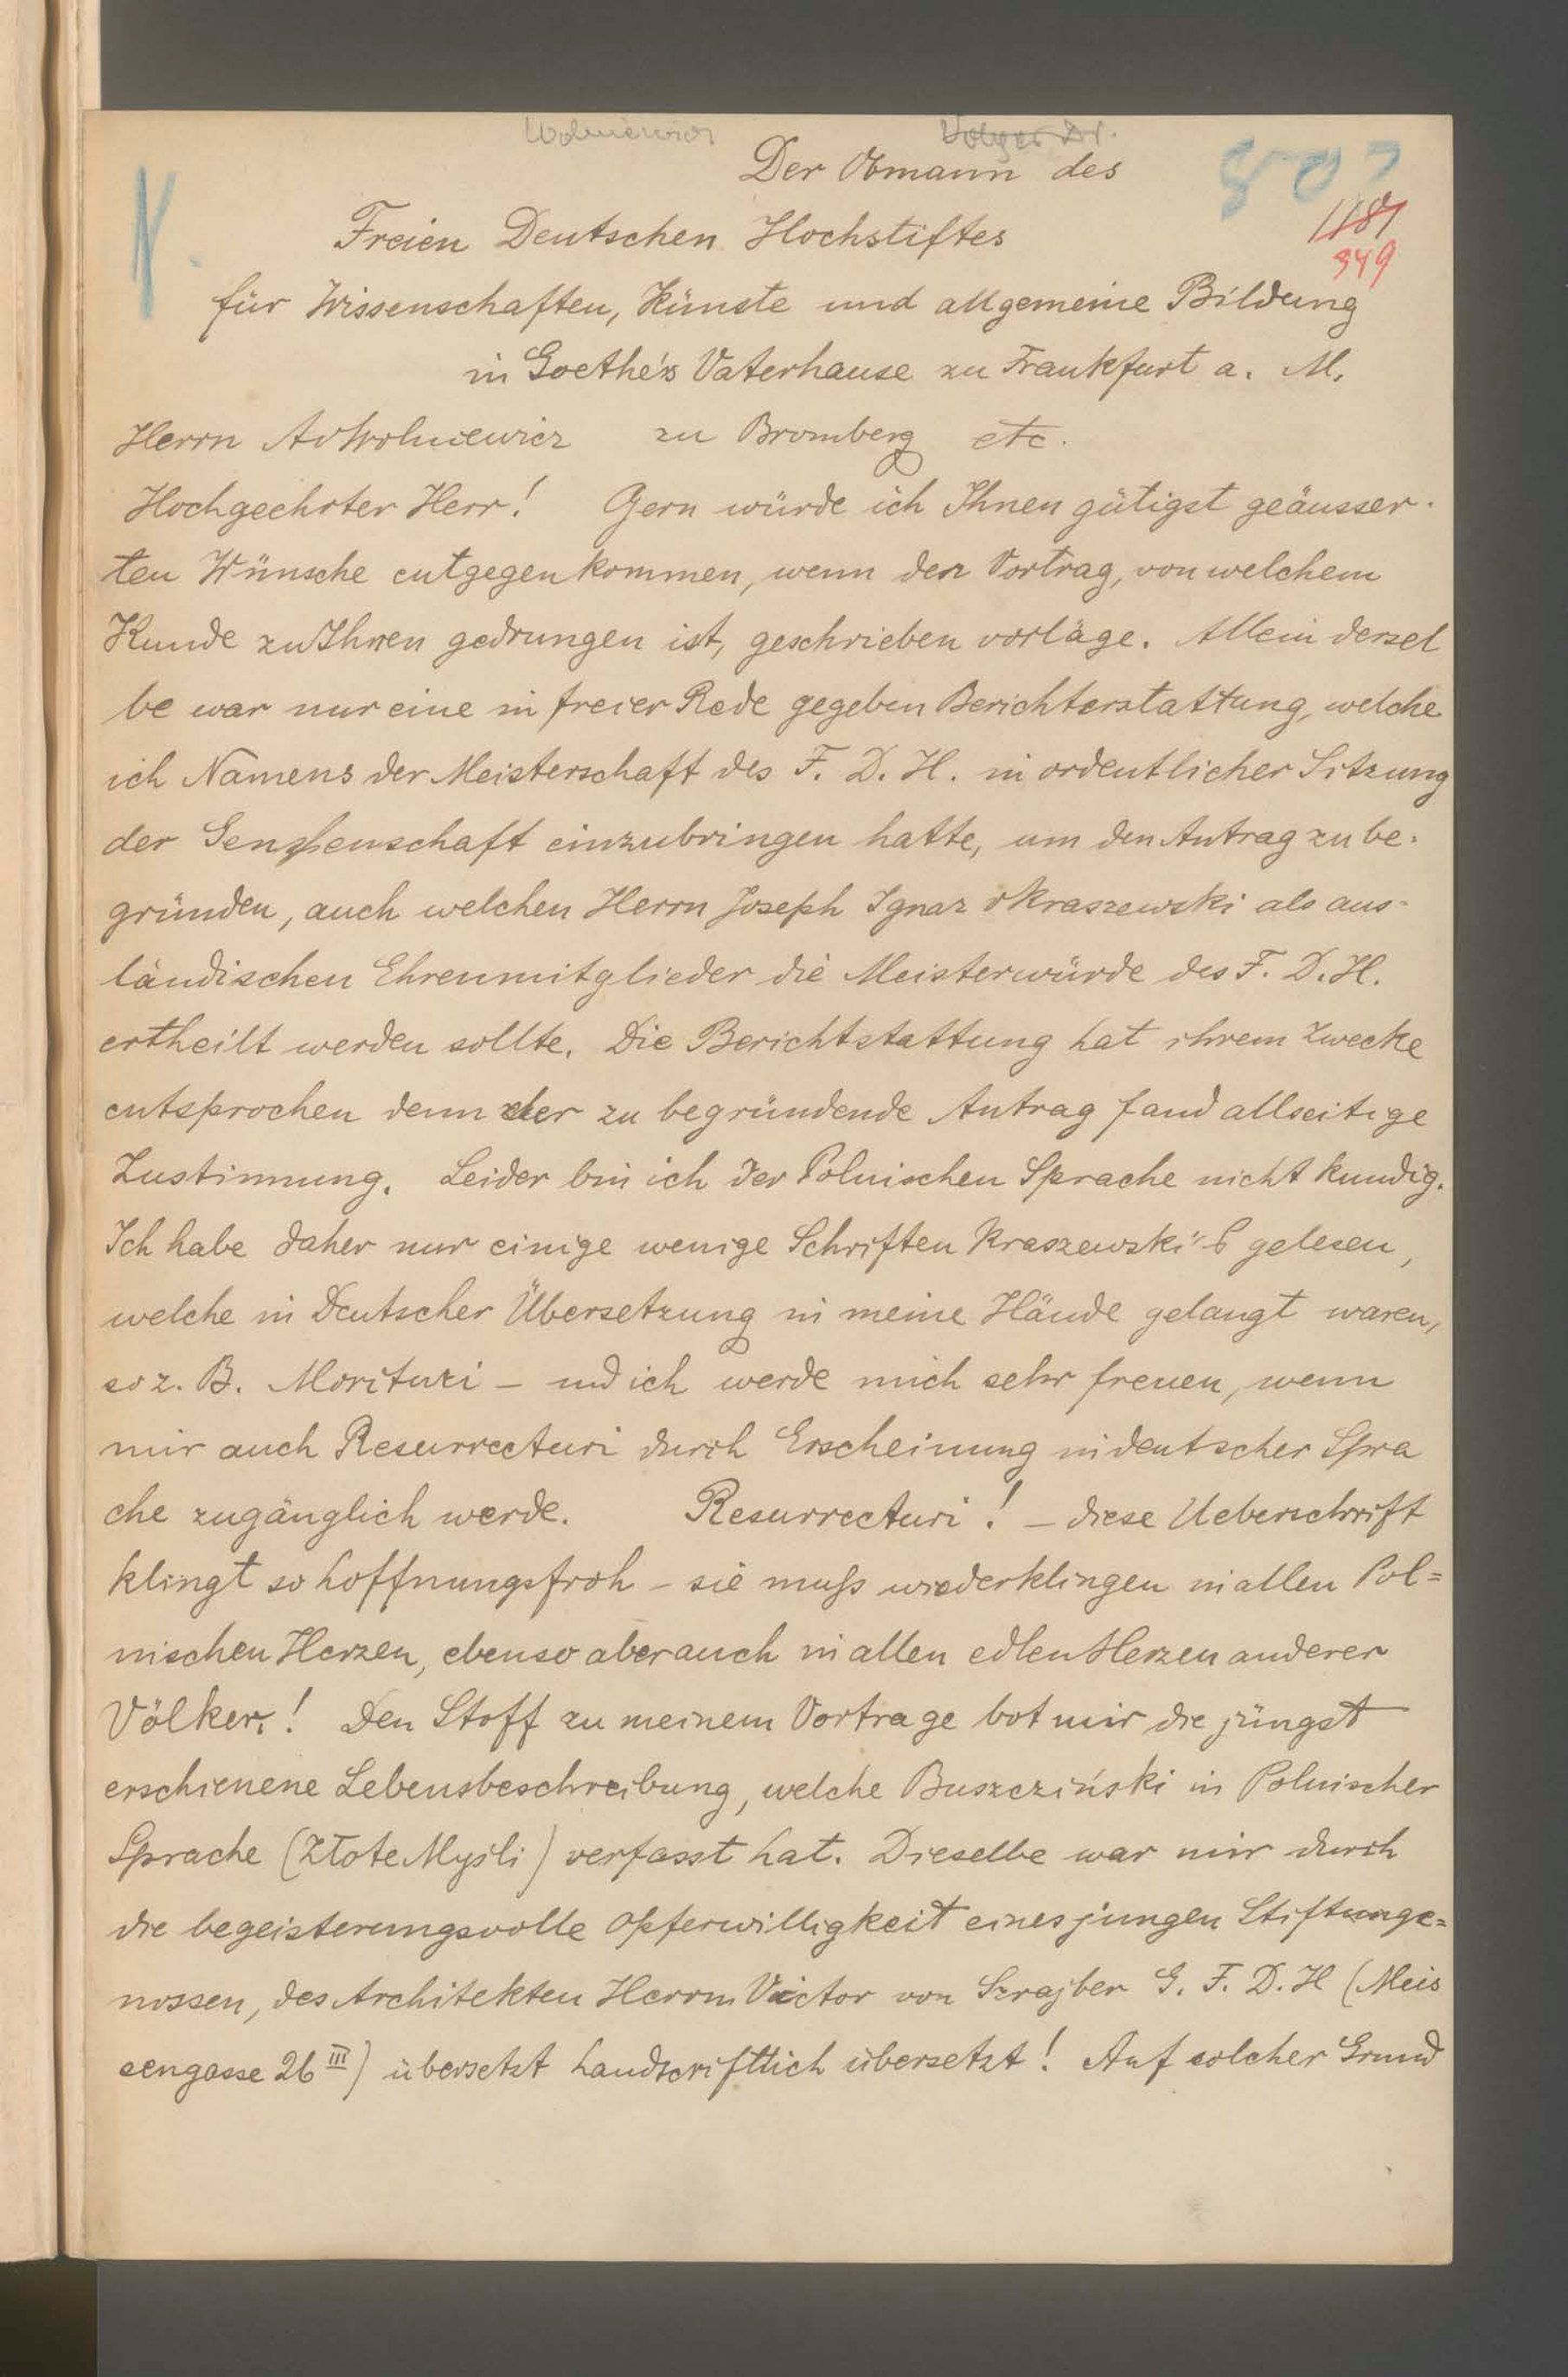 Wolniewicz Volger Dr.
Der Obmann des 802
Freien Deutschen Hochstiftes 1181
349
für Wissenschaften, Künste und allgemeine Bildung
in Goethe's Vaterhause zu Frankfurt a. M.
Herrn AvWolniewicz zu Bromberg etc.
Hochgeehrter Herr! Gern würde ich Ihnen gütigst geäusser-
ten Wünsche entgegenkommen, wenn der Vortrag, von welchem
Kunde zu Ihnen gedrungen ist, geschrieben vorläge. Allein dersel
be war nur eine in freier Rede gegeben Berichterstattung, welche
ich Namens der Meisterschaft des F. D. H. in ordentlicher Sitzung
der einzubringen hatte, um den Antrag zu be-
gründen, auch welchen Herrn Joseph Ignaz vKraszewski als aus-
ländischen Ehrenmitglieder die Meisterwürde des F. D. H.
ertheilt werden sollte. Die Berichtstattung hat ihrem Zwecke
entsprochen denn der zu begründende Antrag fand allseitige
Zustimmung. Leider bin ich der Polnischen Sprache nicht kundig.
Ich habe daher nur einige wenige Schriften Kraszewski's gelesen,
welche in Deutscher Übersetzung in meine Hände gelangt waren,
so z. B. Morituri – und ich werde mich sehr freuen, wenn
mir auch Resurrecturi durch Erscheinung in deutscher Spra
che zugänglich werde. Resurrecturi! – diese Ueberschrift
klingt so hoffnungsfroh – sie muß wiederklingen in allen Pol=
nischen Herzen, ebenso aber auch in allen edlen Herzen anderer
Völker! Den Stoff zu meinem Vortrage bot mir die jüngst
erschienene Lebensbeschreibung, welche Buszcziński in Polnischer
Sprache (Złote Myśli) verfasst hat. Dieselbe war mir durch
die begeisterungsvolle Opferwilligkeit eines jungen Stiftunge=
nossen, des Architekten Herrn Victor von Szrajber G. F. D. H (Meis
sengasse 26 III) übersetzt handscriftlich übersetzt! Auf solcher Grund